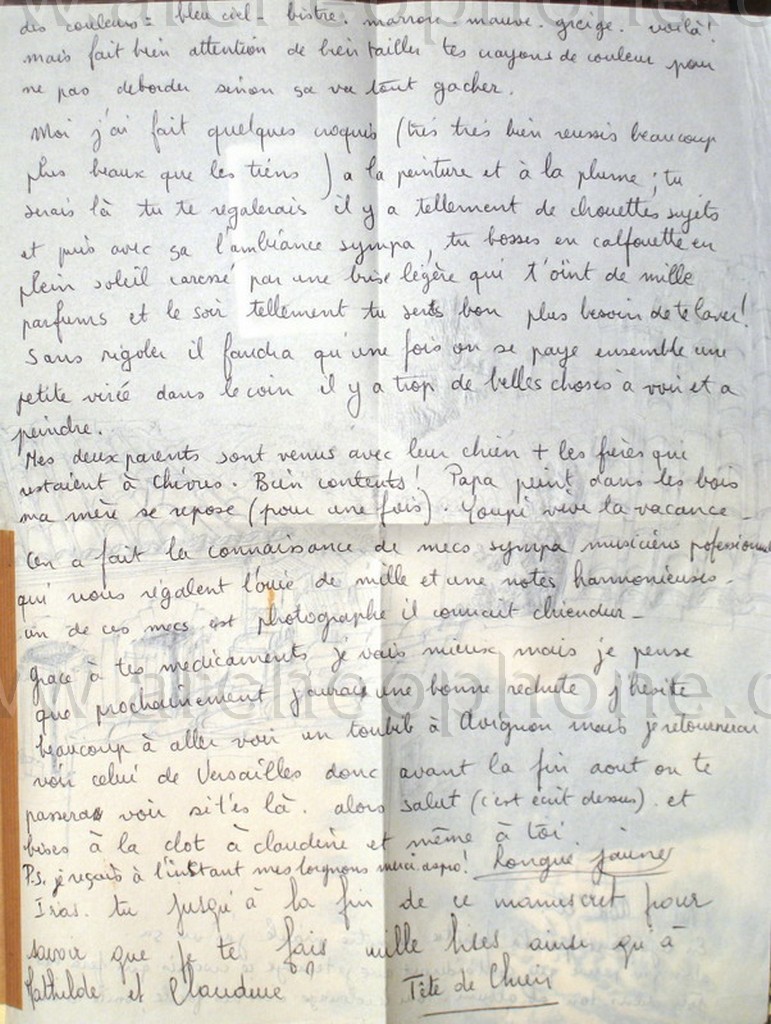 des couleurs = bleu ciel - bistre. marron. mauve. greige. voilà!
mais fait bien attention de bien tailler tes crayons de couleur pour
ne pas deborder sinon sa va tout gacher.
Moi j'ai fait quelques croquis (très très bien reussis beaucoup
plus beaux que les tiens ) a la peinture et à la plume ; tu
serais là tu te régalerais il y a tellement de chouettes sujets
et puis avec sa l'ambiance sympa, tu bosses en calfouette en
plein soleil caressé par une brise légère qui t'oint de mille
parfums et le soir tellement tu sens bon plus besoin de te laver!
Sans rigoler il faudra qu'une fois on se paye ensemble une
petite virée dans le coin il y a trop de belles choses à voir et a
peindre.
Mes deux parents sont venus avec leur chien + les frères qui
restaient à Chèvres. Bien contents! Papa peint dans les bois
ma mère se repose (pour une fois). Youpi vive la vacance -
On a fait la connaissance de mecs sympa musiciens
qui nous régalent l'ouie de mille et une notes harmonieuses -
un de ces mecs est photographe il connait chiendur -
grace à tes medicaments je vais mieux mais je pense
que prochainement j'aurais une bonne rechute j'hesite
beaucoup à aller voir un toubib à Avignon mais je retournerai
voir celui de Versailles donc avant la fin aout on te
passera voir si t'es là. alors salut (c'est ecrit dessus). et
bises à la clot à claudine et même à toi.
P.S. je reçois à l'instant mes lorgnons merci aspro! Longue jaines
Iras. tu jusqu'à la fin de ce manuscret pour
savoir que je te fais mille bises ainsi qu'à
Mathilde et Claudine Tête de Chien